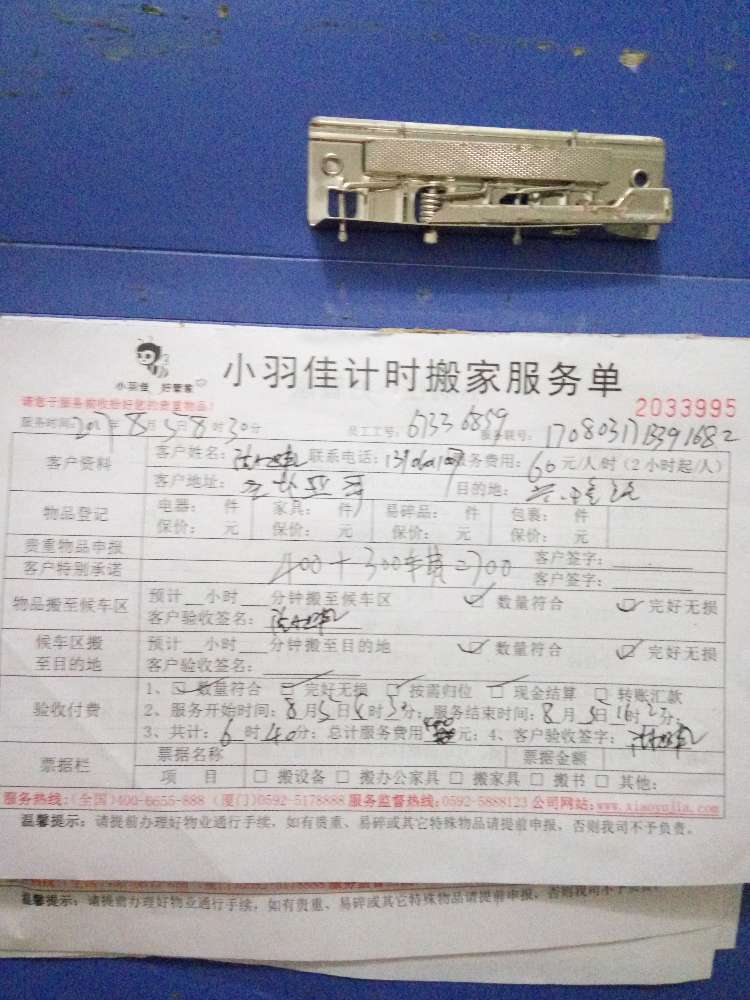 小羽佳 好管家
小羽佳计时搬家服务单
请您于服务前收拾好您的贵重物品!
2033995
服务时间:2017年8月5日8时30分 员工工号:67336859 服务联号:1708031713391682
客户资料
客户姓名: 联系电话: 服务费用:60元/人/时(2小时起/人)
客户地址: 目的地:
物品登记
电器: 件 家具: 件 易碎品: 件 包裹: 件
保价: 元 保价: 元 保价: 元 保价: 元
贵重物品申报 客户签字:
400+300车费=700
客户特别承诺 客户签字:
物品搬至候车区
预计__小时___分钟搬至候车区 数量符合 完好无损
客户验收签名:
候车区搬至目的地
预计__小时___分钟搬至目的地 数量符合 完好无损
客户验收签名:
验收付费
1、数量符合 完好无损 按需归位 现金结算 转账汇款
2、服务开始时间:8月5日 时 分;服务结束时间:8月5日16时 分;
3、共计:6时40分;总计服务费用400元;4、客户验收签字:
票据栏
票据名称 票据金额
项 目 □ 搬设备 □ 搬办公家具 □ 搬家具 □ 搬书 □ 其他:
服务热线:(全国)400-6655-888 (厦门)0592-5178888 服务监督热线:0592-5888123 公司网站:www.xiaoyujia.com
温馨提示: 请提前办理好物业通行手续,如有贵重、易碎或其它特殊物品请提前申报,否则我司不予负责。
温馨提示: 请提前办理好物业通行手续,如有贵重、易碎或其它特殊物品请提前申报,否则我司不予负责